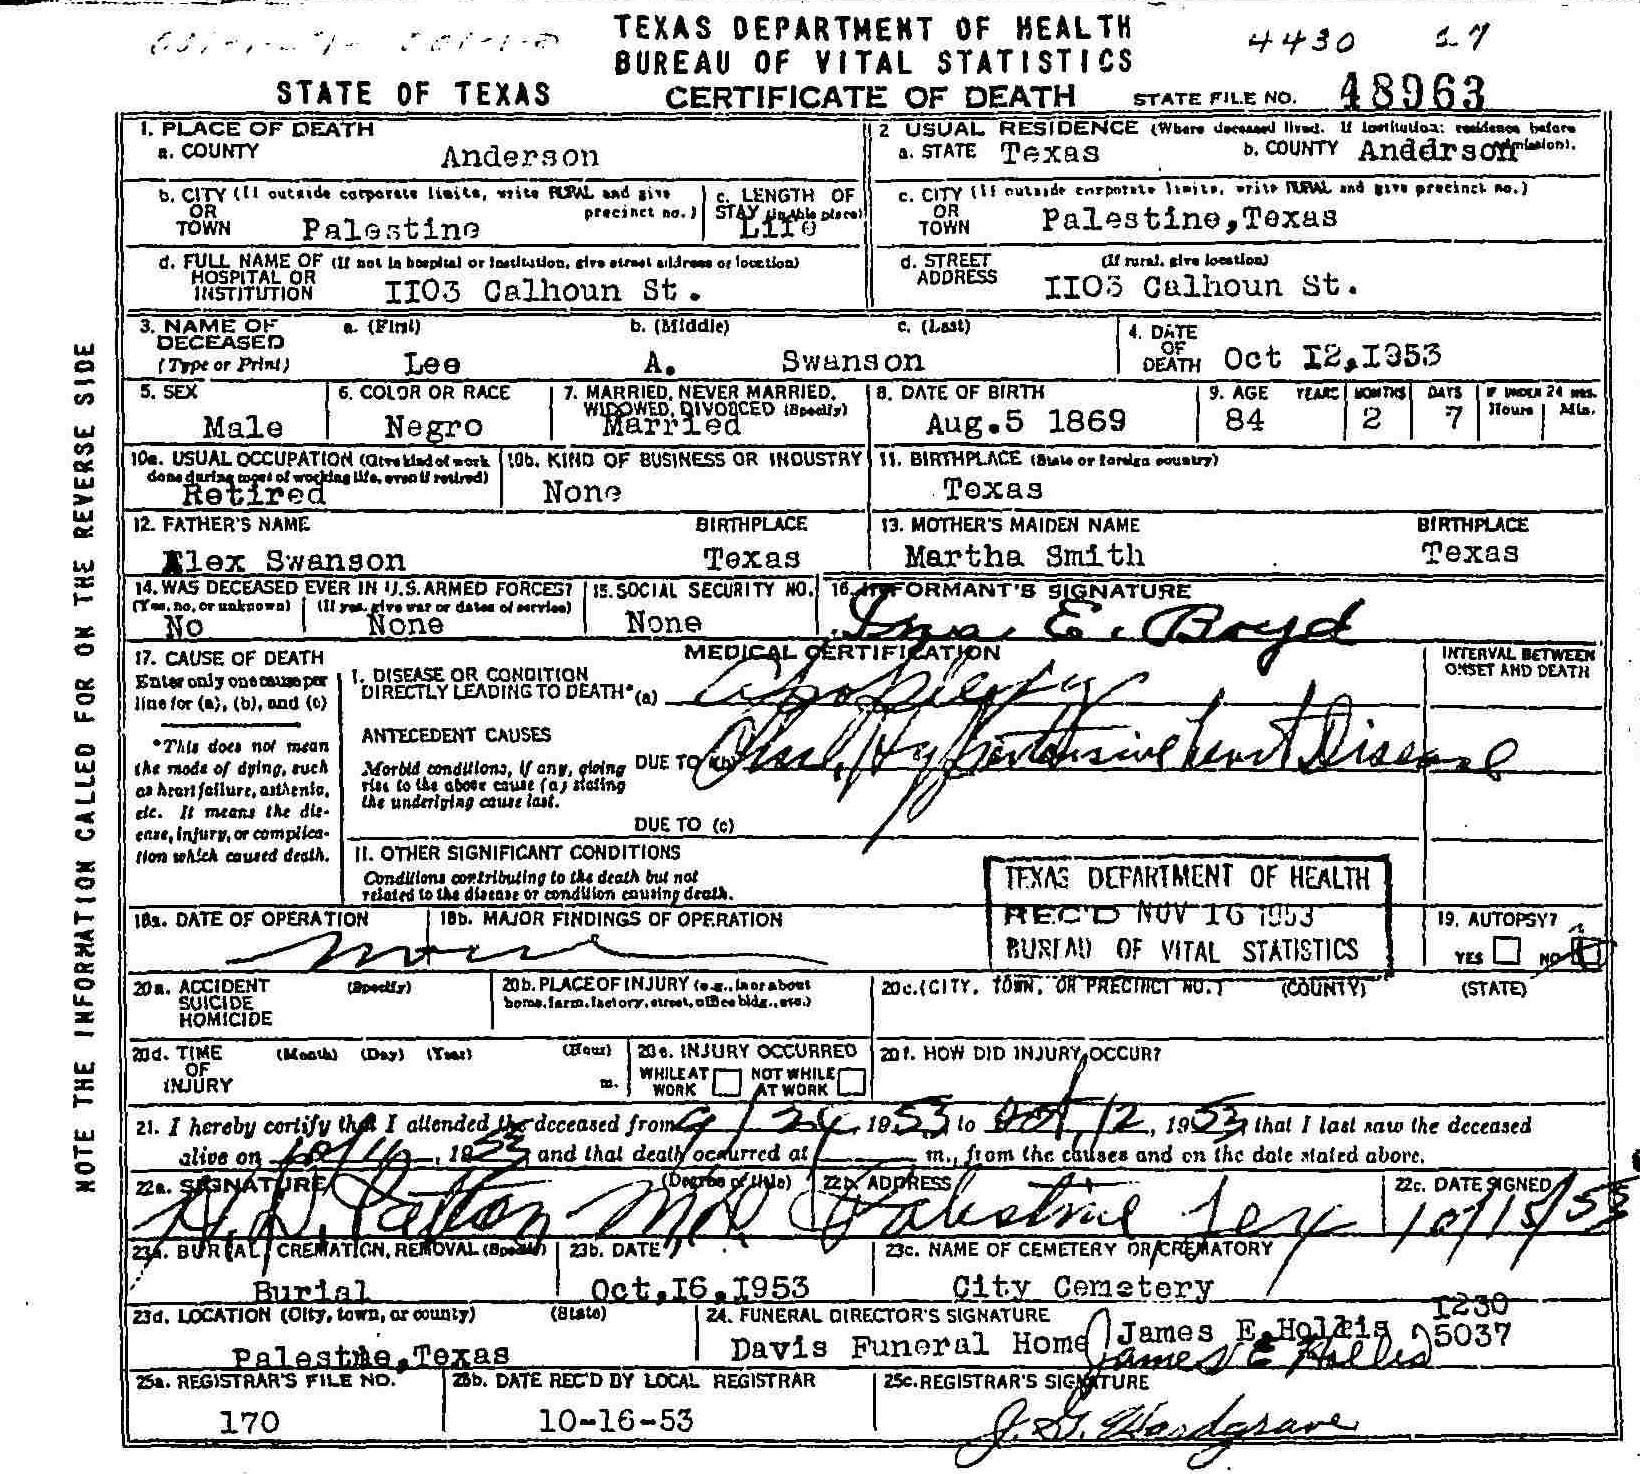 TEXAS DEPARTMENT OF HEALTH
4430 27
BUREAU OF VITAL STATISTICS
STATE OF TEXAS CERTIFICATE OF DEATH STATE FILE NO. 48963
NOTE THE INFORMATION CALLED FOR ON THE REVERSE SIDE
1. PLACE OF DEATH
a. COUNTY Anderson
2 USUAL RESIDENCE (Where deceased lived. If institution: residence before admission).
a. STATE Texas b. COUNTY Anddrson
b. CITY (If outside corporate limits, write RURAL and give precinct no.)
OR TOWN Palestine
c. LENGTH OF STAY (in this place) Life
c. CITY (If outside corporate limits, write RURAL and give precinct no.)
OR TOWN Palestine,Texas
d. FULL NAME OF (If not in hospital or institution, give street address or location)
HOSPITAL OR INSTITUTION II03 Calhoun St.
d. STREET ADDRESS (If rural, give location)
II03 Calhoun St.
3. NAME OF DECEASED (Type or Print) a. (First) b. (Middle) c. (Last)
Lee A. Swanson
4. DATE OF DEATH Oct I2,I953
5. SEX Male
6. COLOR OR RACE Negro
7. MARRIED, NEVER MARRIED, WIDOWED, DIVORCED (Specify) Married
8. DATE OF BIRTH Aug.5 1869
9. AGE YEARS MONTHS DAYS IF UNDER 24 HRS. Hours Min.
84 2 7
10a. USUAL OCCUPATION (Give kind of work done during most of working life, even if retired) Retired
10b. KIND OF BUSINESS OR INDUSTRY None
11. BIRTHPLACE (State or foreign country) Texas
12. FATHER'S NAME BIRTHPLACE
Alex Swanson Texas
13. MOTHER'S MAIDEN NAME BIRTHPLACE
Martha Smith Texas
14. WAS DECEASED EVER IN U.S. ARMED FORCES?
(Yes, no, or unknown) (If yes, give war or dates of service)
No None
15. SOCIAL SECURITY NO. None
16. INFORMANT'S SIGNATURE
E. Boyd
17. CAUSE OF DEATH
Enter only one cause per line for (a), (b), and (c)
*This does not mean the mode of dying, such as heart failure, asthenia, etc. It means the disease, injury, or complication which caused death.
MEDICAL CERTIFICATION
INTERVAL BETWEEN ONSET AND DEATH
I. DISEASE OR CONDITION DIRECTLY LEADING TO DEATH* (a) Apoplexy
ANTECEDENT CAUSES
Morbid conditions, if any, giving rise to the above cause (a) stating the underlying cause last.
DUE TO (b) Hypertensive heart Disease
DUE TO (c)
II. OTHER SIGNIFICANT CONDITIONS
Conditions contributing to the death but not related to the disease or condition causing death.
TEXAS DEPARTMENT OF HEALTH
REC'D NOV 16 1953
BUREAU OF VITAL STATISTICS
18a. DATE OF OPERATION 18b. MAJOR FINDINGS OF OPERATION
none
19. AUTOPSY?
YES NO
20a. ACCIDENT SUICIDE HOMICIDE (Specify)
20b. PLACE OF INJURY (e.g., in or about home, farm, factory, street, office bldg., etc.)
20c. (CITY, TOWN, OR PRECINCT NO.) (COUNTY) (STATE)
20d. TIME OF INJURY (Month) (Day) (Year) (Hour) m.
20e. INJURY OCCURRED
WHILE AT WORK NOT WHILE AT WORK
20f. HOW DID INJURY OCCUR?
21. I hereby certify that I attended the deceased from 1953, to Oct, 12, 1953, that I last saw the deceased
alive on , 1953 and that death occurred at m., from the causes and on the date stated above.
22a. SIGNATURE (Degree or title) 22b. ADDRESS 22c. DATE SIGNED
M.D. Palestine Tex 10/15/53
23a. BURIAL, CREMATION, REMOVAL (Specify) Burial
23b. DATE Oct.I6.I953
23c. NAME OF CEMETERY OR CREMATORY City Cemetery
23d. LOCATION (City, town, or county) (State)
Palestne,Texas
24. FUNERAL DIRECTOR'S SIGNATURE
Davis Funeral Home James E.Hollis I230 5037
James E Hollis
25a. REGISTRAR'S FILE NO. 170
25b. DATE REC'D BY LOCAL REGISTRAR 10-16-53
25c. REGISTRAR'S SIGNATURE